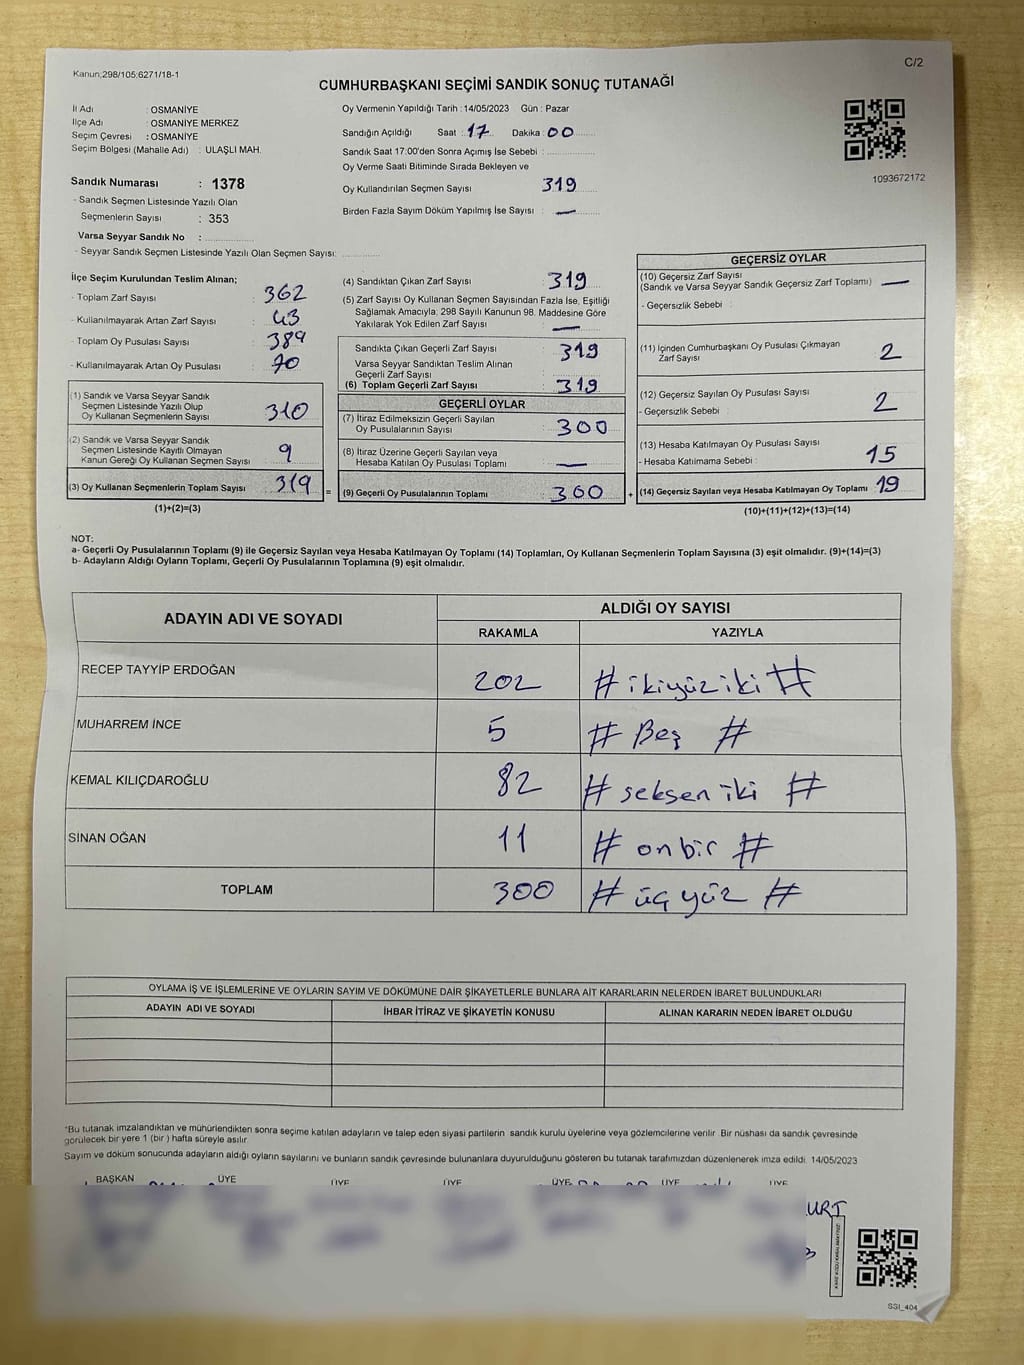 Kanun;298/105;6271/18-1
C/2
CUMHURBAŞKANI SEÇİMİ SANDIK SONUÇ TUTANAĞI
İl Adı : OSMANİYE
İlçe Adı : OSMANİYE MERKEZ
Seçim Çevresi : OSMANİYE
Seçim Bölgesi (Mahalle Adı) : ULAŞLI MAH.
Oy Vermenin Yapıldığı Tarih :14/05/2023 Gün : Pazar
Sandığın Açıldığı Saat : 17 Dakika : 00
Sandık Saat 17:00'den Sonra Açımış İse Sebebi :
Oy Verme Saati Bitiminde Sırada Bekleyen ve
Oy Kullandırılan Seçmen Sayısı : 319
Birden Fazla Sayım Döküm Yapılmış İse Sayısı : —
1093672172
Sandık Numarası : 1378
- Sandık Seçmen Listesinde Yazılı Olan
Seçmenlerin Sayısı : 353
Varsa Seyyar Sandık No :
- Seyyar Sandık Seçmen Listesinde Yazılı Olan Seçmen Sayısı:
İlçe Seçim Kurulundan Teslim Alınan;
- Toplam Zarf Sayısı : 362
- Kullanılmayarak Artan Zarf Sayısı : 43
- Toplam Oy Pusulası Sayısı : 389
- Kullanılmayarak Artan Oy Pusulası : 70
(1) Sandık ve Varsa Seyyar Sandık
Seçmen Listesinde Yazılı Olup
Oy Kullanan Seçmenlerin Sayısı : 310
(2) Sandık ve Varsa Seyyar Sandık
Seçmen Listesinde Kayıtlı Olmayan
Kanun Gereği Oy Kullanan Seçmen Sayısı : 9
(3) Oy Kullanan Seçmenlerin Toplam Sayısı : 319 =
(1)+(2)=(3)
(4) Sandıktan Çıkan Zarf Sayısı : 319
(5) Zarf Sayısı Oy Kullanan Seçmen Sayısından Fazla İse, Eşitliği
Sağlamak Amacıyla; 298 Sayılı Kanunun 98. Maddesine Göre
Yakılarak Yok Edilen Zarf Sayısı : —
Sandıkta Çıkan Geçerli Zarf Sayısı : 319
Varsa Seyyar Sandıktan Teslim Alınan
Geçerli Zarf Sayısı :
(6) Toplam Geçerli Zarf Sayısı : 319
GEÇERLİ OYLAR
(7) İtiraz Edilmeksizin Geçerli Sayılan
Oy Pusulalarının Sayısı : 300
(8) İtiraz Üzerine Geçerli Sayılan veya
Hesaba Katılan Oy Pusulası Toplamı : —
(9) Geçerli Oy Pusulalarının Toplamı : 300 +
GEÇERSİZ OYLAR
(10) Geçersiz Zarf Sayısı
(Sandık ve Varsa Seyyar Sandık Geçersiz Zarf Toplamı) : —
- Geçersizlik Sebebi :
(11) İçinden Cumhurbaşkanı Oy Pusulası Çıkmayan
Zarf Sayısı : 2
(12) Geçersiz Sayılan Oy Pusulası Sayısı : 2
- Geçersizlik Sebebi :
(13) Hesaba Katılmayan Oy Pusulası Sayısı : 15
- Hesaba Katılmama Sebebi :
(14) Geçersiz Sayılan veya Hesaba Katılmayan Oy Toplamı : 19
(10)+(11)+(12)+(13)=(14)
NOT:
a- Geçerli Oy Pusulalarının Toplamı (9) ile Geçersiz Sayılan veya Hesaba Katılmayan Oy Toplamı (14) Toplamları, Oy Kullanan Seçmenlerin Toplam Sayısına (3) eşit olmalıdır. (9)+(14)=(3)
b- Adayların Aldığı Oyların Toplamı, Geçerli Oy Pusulalarının Toplamına (9) eşit olmalıdır.
ADAYIN ADI VE SOYADI ALDIĞI OY SAYISI
RAKAMLA YAZIYLA
RECEP TAYYİP ERDOĞAN 202 # ikiyüziki #
MUHARREM İNCE 5 # Beş #
KEMAL KILIÇDAROĞLU 82 # seksen iki #
SİNAN OĞAN 11 # onbir #
TOPLAM 300 # üçyüz #
OYLAMA İŞ VE İŞLEMLERİNE VE OYLARIN SAYIM VE DÖKÜMÜNE DAİR ŞİKAYETLERLE BUNLARA AİT KARARLARIN NELERDEN İBARET BULUNDUKLARI
ADAYIN ADI VE SOYADI İHBAR İTİRAZ VE ŞİKAYETİN KONUSU ALINAN KARARIN NEDEN İBARET OLDUĞU
*Bu tutanak imzalandıktan ve mühürlendikten sonra seçime katılan adayların ve talep eden siyasi partilerin sandık kurulu üyelerine veya gözlemcilerine verilir. Bir nüshası da sandık çevresinde
görülecek bir yere 1 (bir ) hafta süreyle asılır.
Sayım ve döküm sonucunda adayların aldığı oyların sayılarını ve bunların sandık çevresinde bulunanlara duyurulduğunu gösteren bu tutanak tarafımızdan düzenlenerek imza edildi. 14/05/2023
BAŞKAN ÜYE ÜYE ÜYE ÜYE ÜYE ÜYE
URT
SSI_404